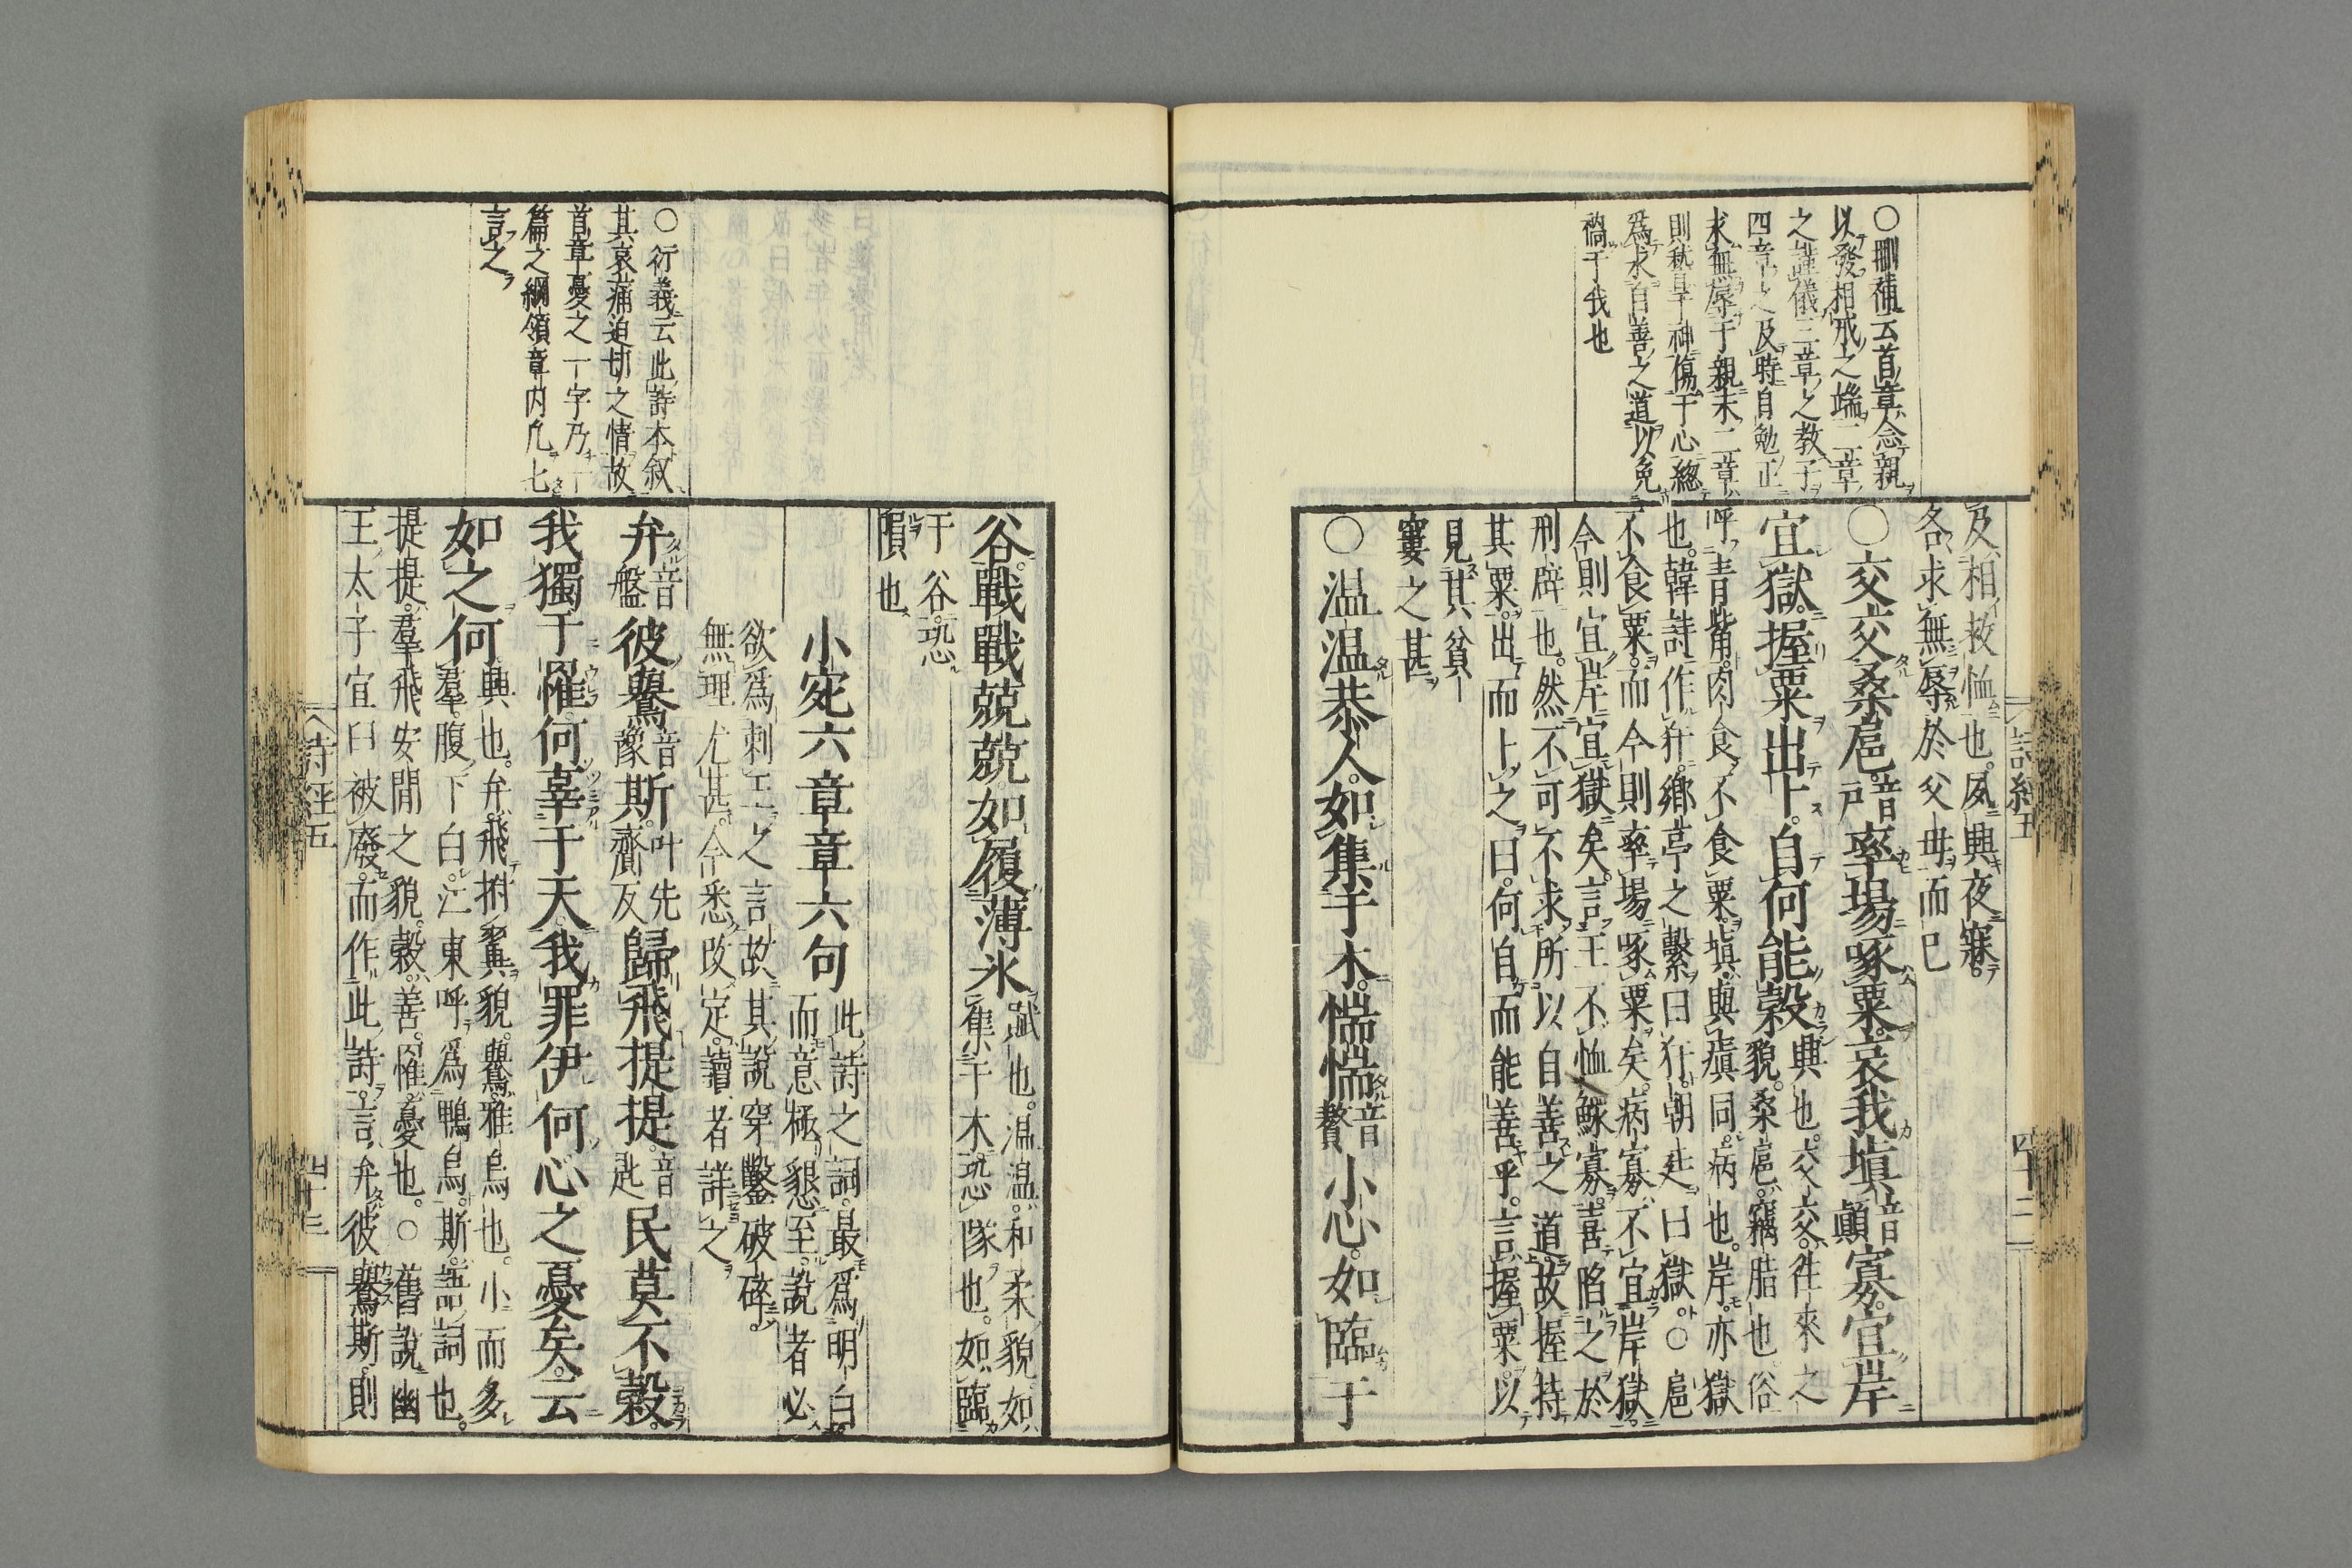 ○刪補云首章念親
以發相戒之端二章
之謹儀三章之教子
四章之及時自勉正
求無辱于親末二章
則執旨于神傷于心總
爲求自善之道以免
禍于我也
及相救恤也。夙興夜寐。
各求無辱於父母而已
○交交桑扈。音戶率場啄粟。哀我塡音顚寡。宜岸
宜獄。握粟出卜。自何能穀興也。交交。往來之
貌。桑扈。竊脂也。俗
呼青觜。肉食不食粟。塡。與瘨同。病也。岸。亦獄
也。韓詩作犴。鄉亭之繫曰犴。朝廷曰獄。○扈
不食粟。而今則率場啄粟矣。病寡不宜岸獄。
今則宜岸宜獄矣。言王不恤鰥寡。喜陷之於
刑辟也。然不可不求所以自善之道。故握持
其粟。出而卜之曰。何自而能善乎。言握粟。以
見其貧
窶之甚
○温温恭人。如集于木。惴惴音贅小心。如臨于
詩經五
四十二
谷。戰戰兢兢。如履薄氷賦也。温温。和柔貌。如
集于木。恐隊也。如臨
于谷。恐
隕也
小宛六章章六句此詩之詞。最爲明白。
而意極懇至。說者必
欲爲刺王之言。故其說穿鑿破碎。
無理尤甚。今悉改定。讀者詳之
○衍義云此詩本叙
其哀痛迫切之情故
首章憂之一字乃一
篇之綱領章内凡七
言之
弁音盤彼鸒音豫斯。叶先齎反歸飛提提。音匙民莫不穀。
我獨于罹。何辜于天。我罪伊何。心之憂矣。云
如之何興也。弁。飛拊翼貌。鸒。雅烏也。小而多
羣。腹下白。江東呼爲鵯烏。斯。語詞也。
提提。羣飛安閒之貌。穀。善。罹。憂也。○舊說幽
王太子宜臼被廢。而作此詩。言弁彼鸒斯。則
詩經五
四十三